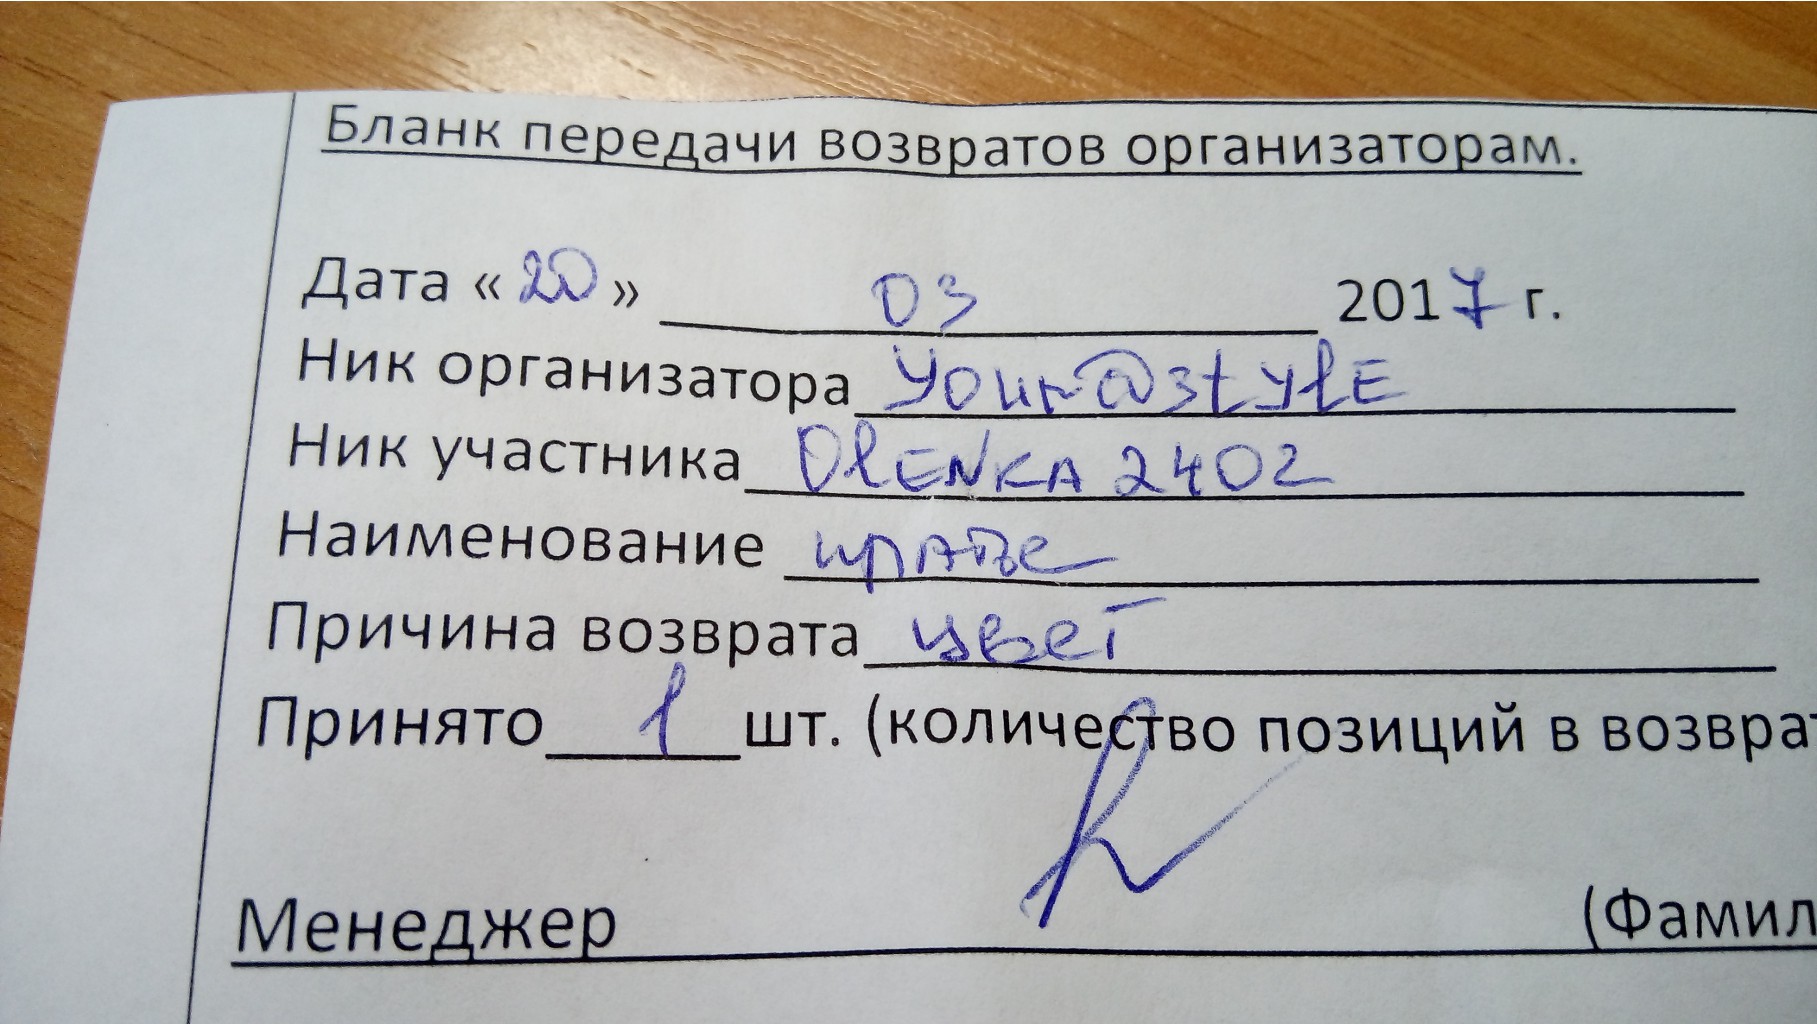 Бланк передачи возвратов организаторам.
Дата «20» 03 2017 г.
Ник организатора Your@stylE
Ник участника OlENKA 2402
Наименование платье
Причина возврата цвет
Принято 1 шт. (количество позиций в возврат
Менеджер (Фамил